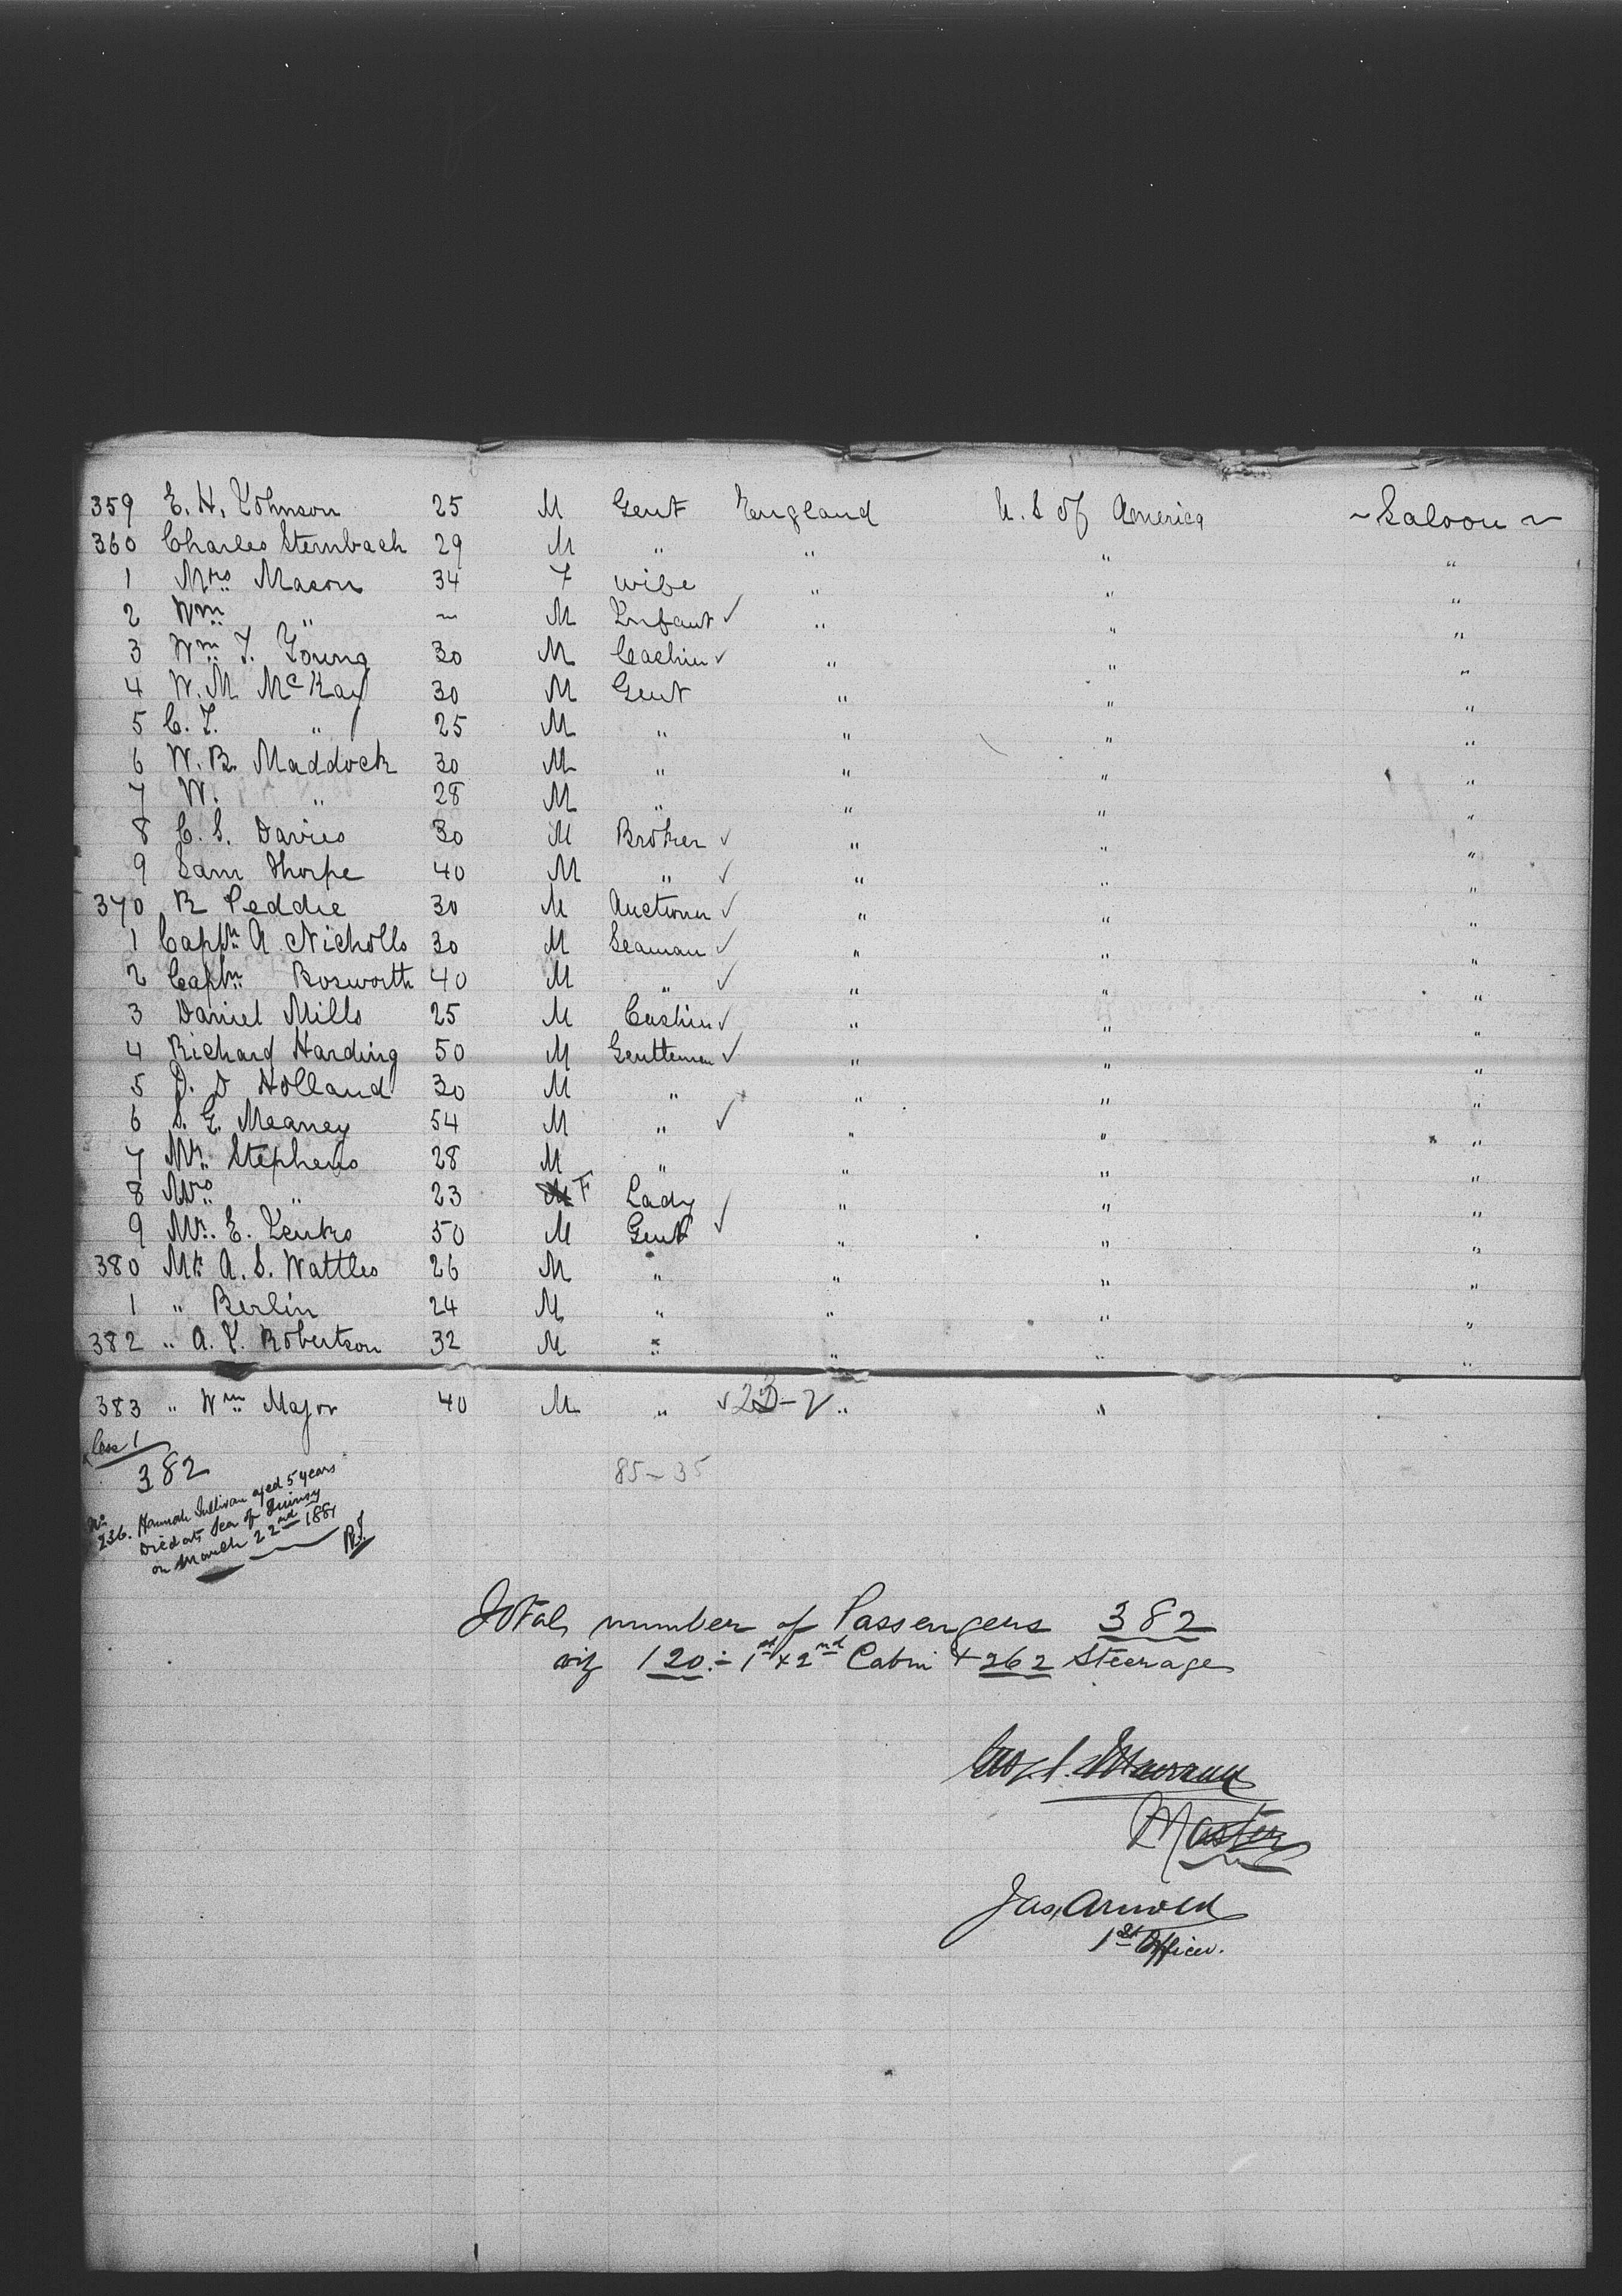 359 E. H. Johnson 25 M Gent England U. S of America ~ Saloon ~
360 Charles Sternbach 29 M " " " "
1 Mrs Mason 34 F wife " " "
2 Wm " ~ M Infant ✓ " " "
3 Wm T. Young 30 M Cashier ✓ " " "
4 W. M McKay 30 M Gent " " "
5 C. T. " 25 M " " " "
6 W. R. Maddock 30 M " " " "
7 W. " 28 M " " " "
8 C. S. Davies 30 M Broker ✓ " " "
9 Sam Thorpe 40 M " ✓ " " "
370 R Peddie 30 M Auctioner ✓ " " "
1 Captn A Nicholls 30 M Seaman ✓ " " "
2 Captn Bosworth 40 M " ✓ " " "
3 Daniel Mills 25 M Cashier ✓ " " "
4 Richard Harding 50 M Gentleman ✓ " " "
5 D. D Holland 30 M " " " "
6 S. E. Meaney 54 M " ✓ " " "
7 Mr. Stephens 28 M " " " "
8 Mrs " 23 F Lady ✓ " " "
9 Mr. E. 50 M Gent ✓ " " "
380 Mr A. S. Wattles 26 M " " " "
1 " Berlin 24 M " " " "
382 " A. Y. Robertson 32 M " " " "
383 " Wm Major 40 M " ✓ 23-2 " "
Less 1
382
85-35
No 236. Hannah Sullivan aged 5 years
Died at Sea of Quinsy
on March 22nd 1881
Total number of Passengers 382
viz 120 :- 1st & 2nd Cabin + 262 Steerage
Master
Jas. Arnold
1st Officer.